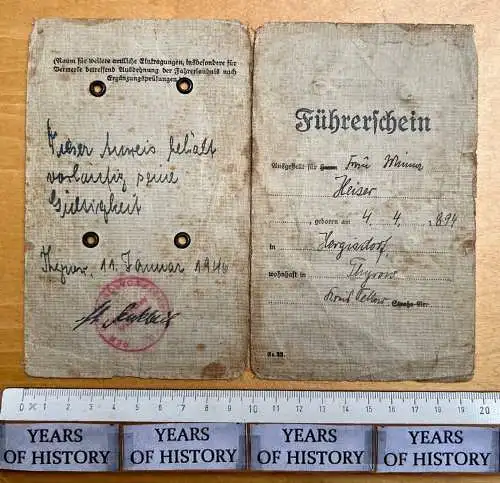 (Raum für weitere amtliche Eintragungen, insbesondere für
Vermerke betreffend Ausdehnung der Fahrerlaubnis nach
Ergänzungsprüfungen
Dieser Ausweis behält
vorläufig seine
Gültigkeit
Thyrow, 11. Januar 1946
Führerschein
Ausgestellt für Frau Minna
Heiser
geboren am 4. 4. 1894
in Hergisdorf,
wohnhaft in Thyrow
Kreis Teltow Straße Nr.
0 1 2 3 4 5 6 7 8 9 10 11 12 13 14 15 16 17 18 19 20
YEARS OF HISTORY
YEARS OF HISTORY
YEARS OF HISTORY
YEARS OF HISTORY